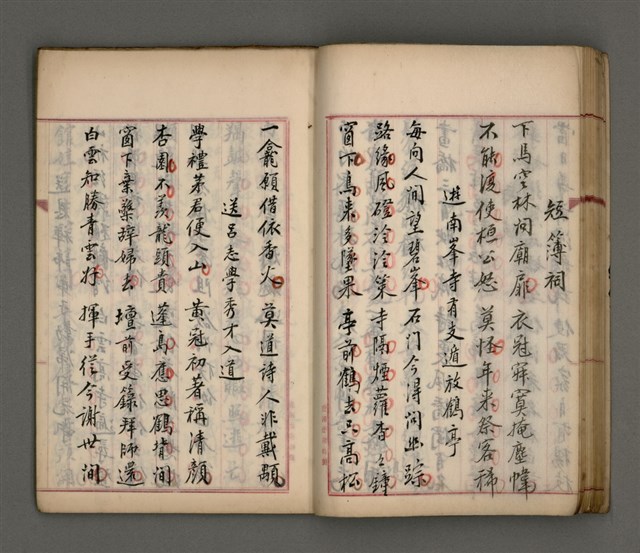 短簿祠
下馬空林問廟扉 衣冠寂寞掩塵幃
不能渡使桓公怒 莫怪年來祭客稀
遊南峯寺有支遁放鶴亭
每向人間望碧峯 石门今得问幽踪
路緣風磴泠泠策 寺隔煙蘿杳杳鐘
窗下鳥來多墜果 亭前鶴去只高松
一龕願借依香火 莫道詩人非戴顒
送呂志學秀才入道
學禮茅君便入山 黃冠初著稱清顏
杏園不羨龍頭貴 蓬島應思鶴背间
窗下棄藥辞婦去 壇前受籙拜師還
白雲知勝青雲好 揮手從今謝世间